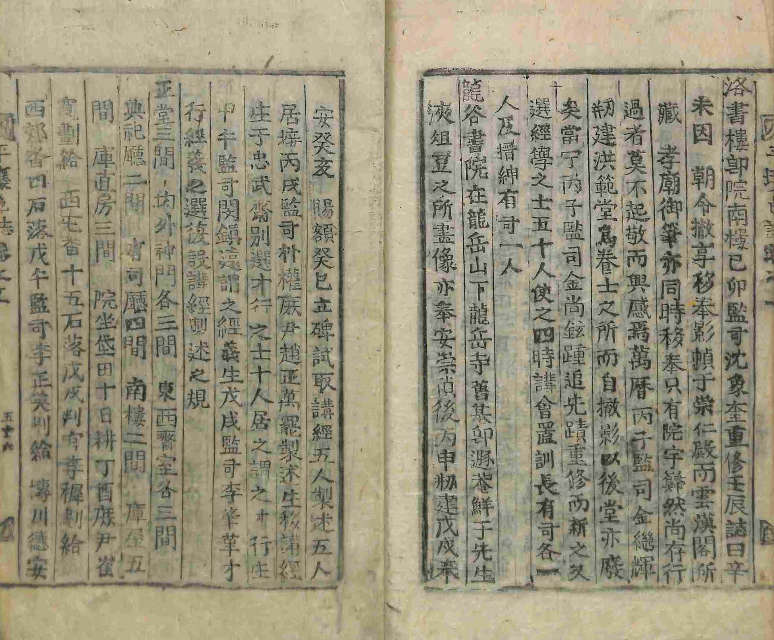 洛書樓卽院南樓己卯監司沈象奎重修壬辰誌曰辛
未因 朝令撤享移奉影幀于崇仁殿而雲漢閣所
藏 孝廟御筆亦同時移奉只有院宇巋然尙存行
過者莫不起敬而興感焉萬曆丙子監司金繼輝
刱建洪範堂爲養士之所而自撤影以後堂亦廢
矣當宁丙子監司金尙鉉踵追先蹟重修而新之又
選經學之士五十人使之四時講會置訓長有司各一
人及搢紳有司一人
龍谷書院在龍岳山下龍岳寺舊基卽遯菴鮮于先生
俎豆之所畫像亦奉安崇禎後丙申刱建戊戌奉
安癸亥 賜額癸巳立碑試取講經五人製述五人
居接丙戌監司朴權庶尹趙正萬罷製述生移講經
生于忠武齋別選才行之士十人居之謂之才行生
甲午監司閔鎭遠謂之經義生戊戌監司李 革才
行經義之選後設講經製述之規
正堂三間 內外神門各三間 東西齋室各三間
典祀廳二間 有司廳四間 南樓二間 庫屋五
間 庫直房三間 院坐垈田十日耕丁酉庶尹崔
劃給 西屯畓十五石落戊戌判官李 劃給
西郊畓四石落戊午監司李正英劃給 德安
五十六